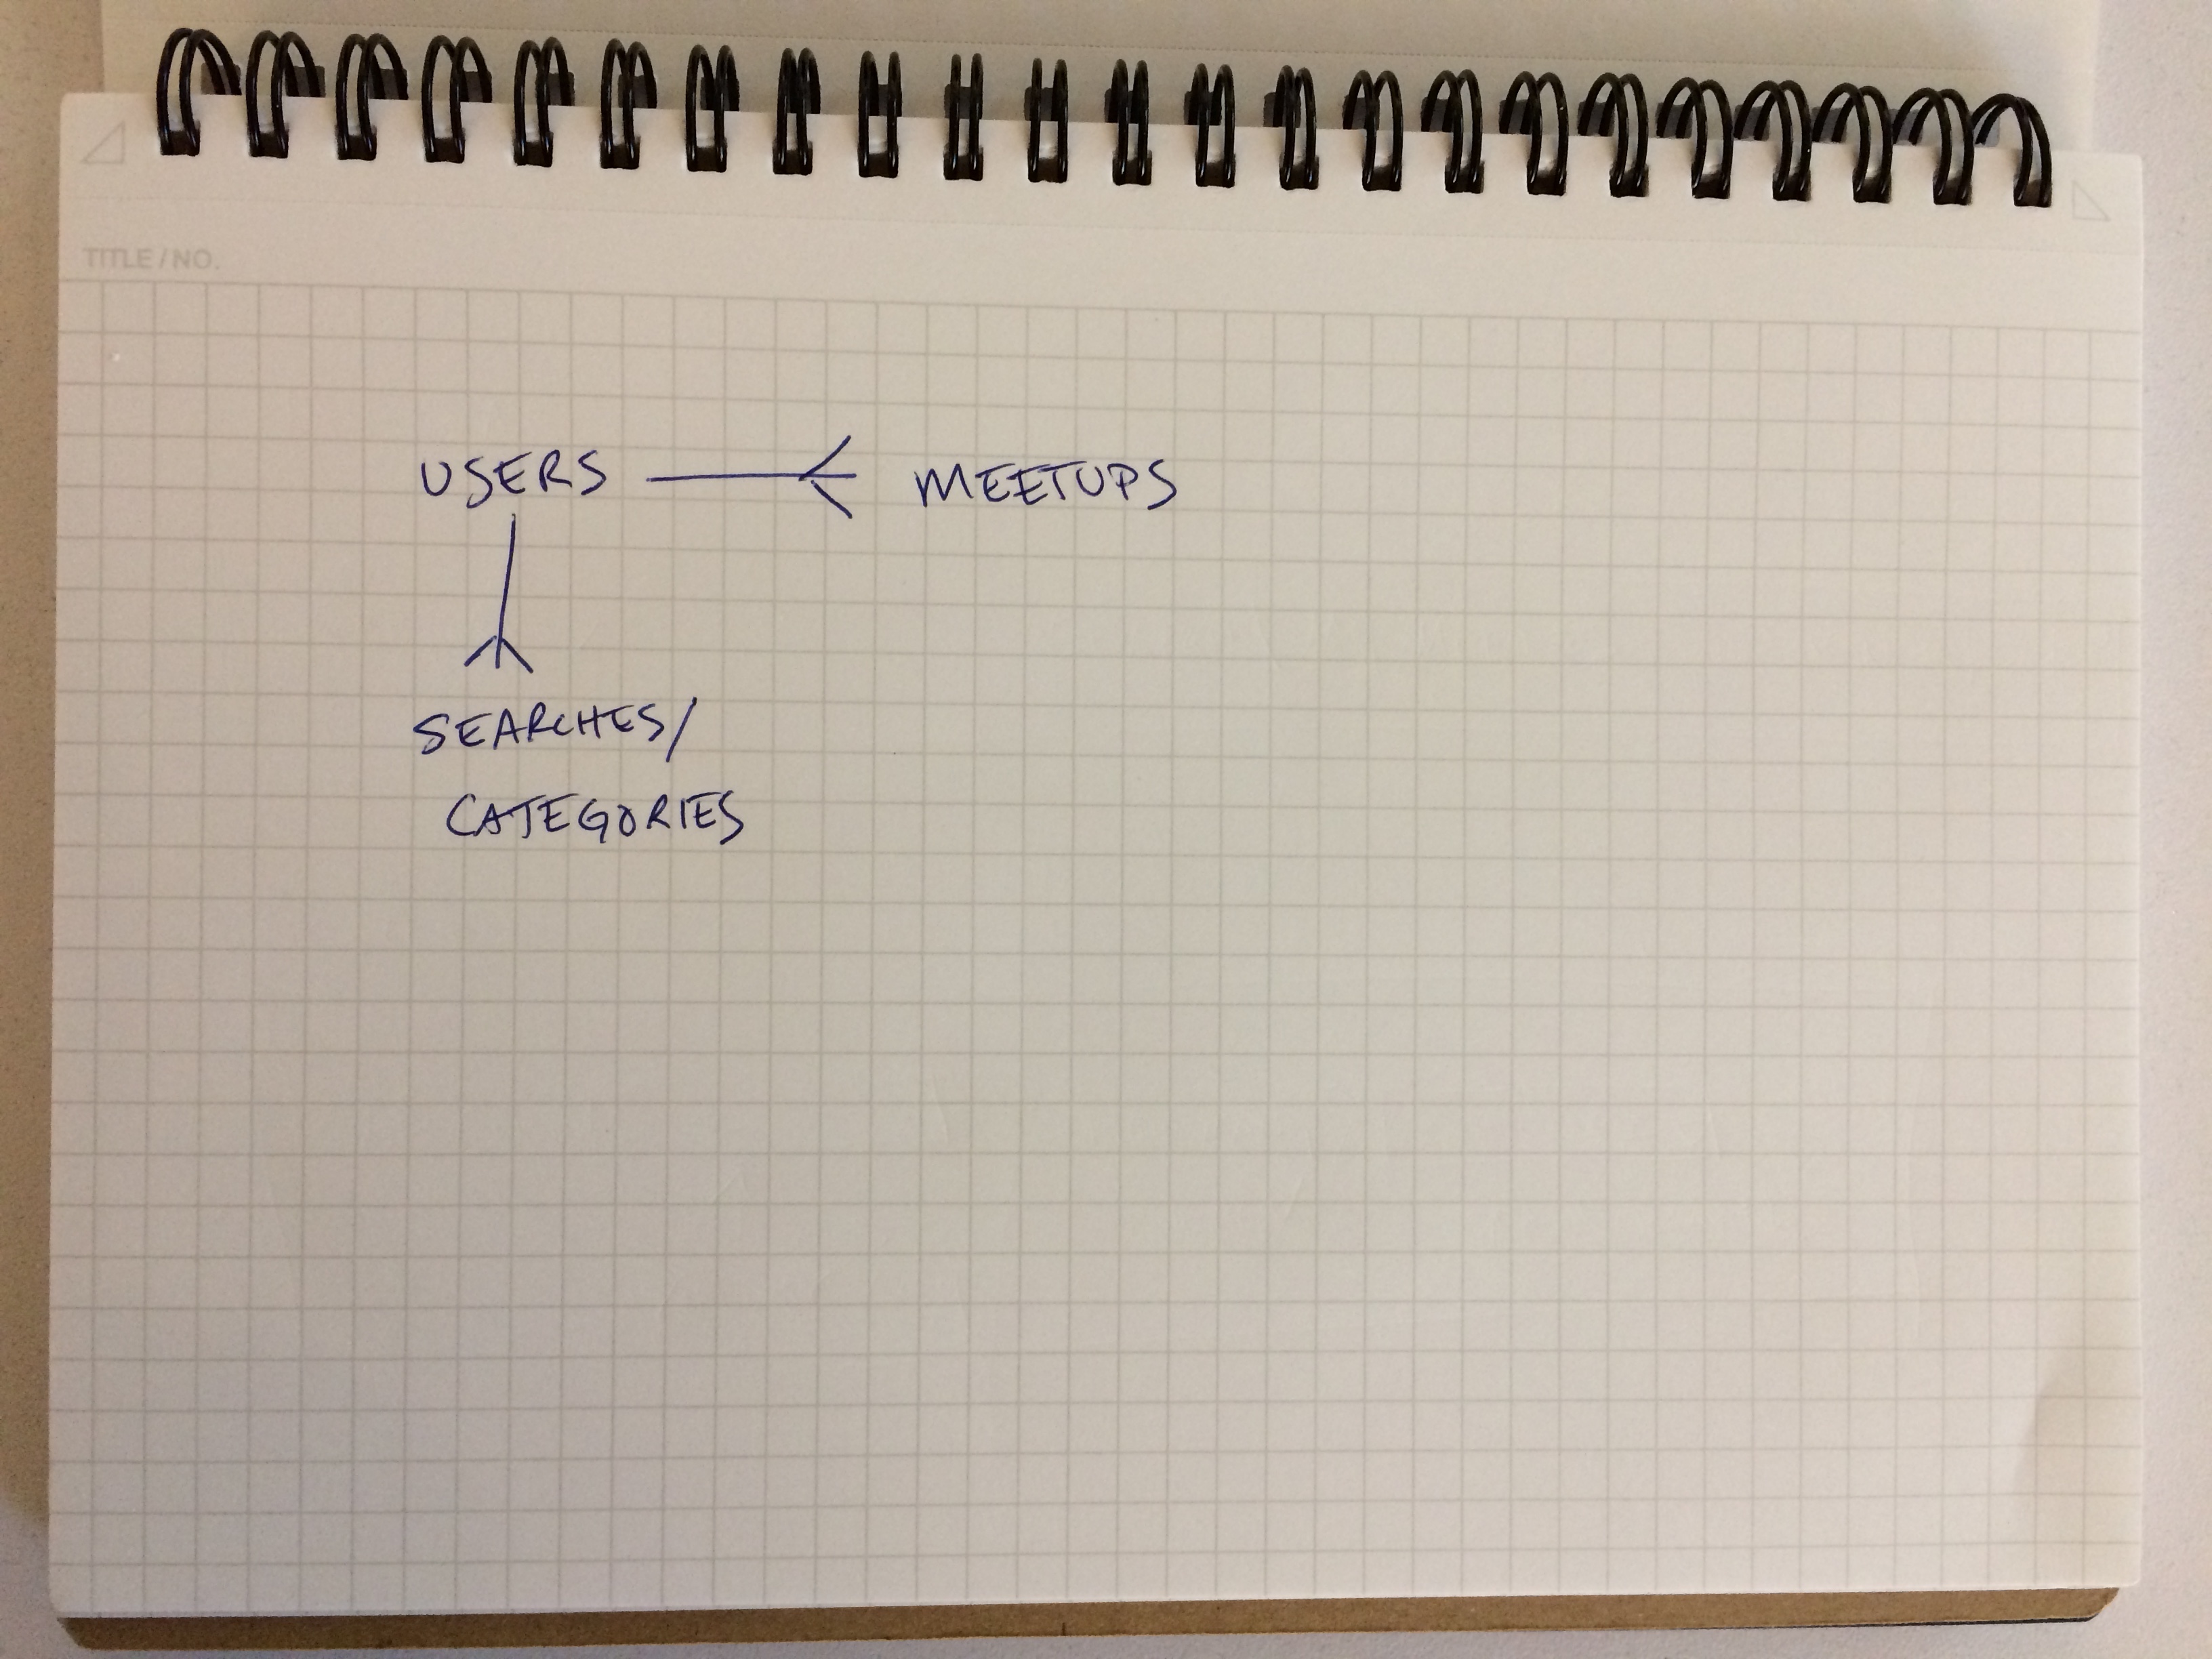 TITLE / NO.
USERS MEETUPS
SEARCHES/
CATEGORIES